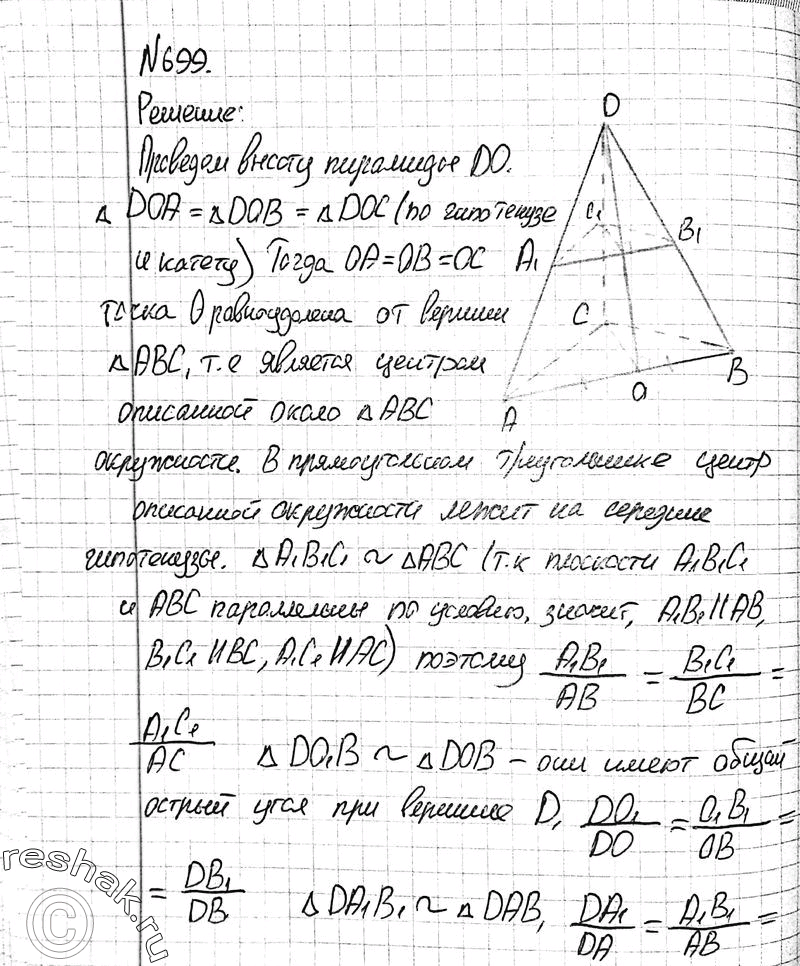 N699.
Решение:
Проведем высоту пирамиды DO.
△ DOA = △DOB = △DOC (по гипотенузе
и катету) Тогда OA=OB=OC
точка O равноудалена от вершин
△ABC, т.е является центром
описанной около △ABC
окружности. В прямоугольном треугольнике центр
описанной окружности лежит на середине
гипотенузы. △A₁B₁C₁ ~ △ABC (т.к плоскости A₁B₁C₁
и ABC параллельны по условию, значит, A₁B₁ || AB,
B₁C₁ || BC, A₁C₁ || AC) поэтому A₁B₁/AB = B₁C₁/BC =
A₁C₁/AC △ DO₁B ~ △DOB – они имеют общий
острый угол при вершине D, DO₁/DO = O₁B₁/OB =
= DB₁/DB △DA₁B₁ ~ △DAB, DA₁/DA = A₁B₁/AB =
D
C₁
B₁
A₁
C
B
O
A
reshak.ru
©